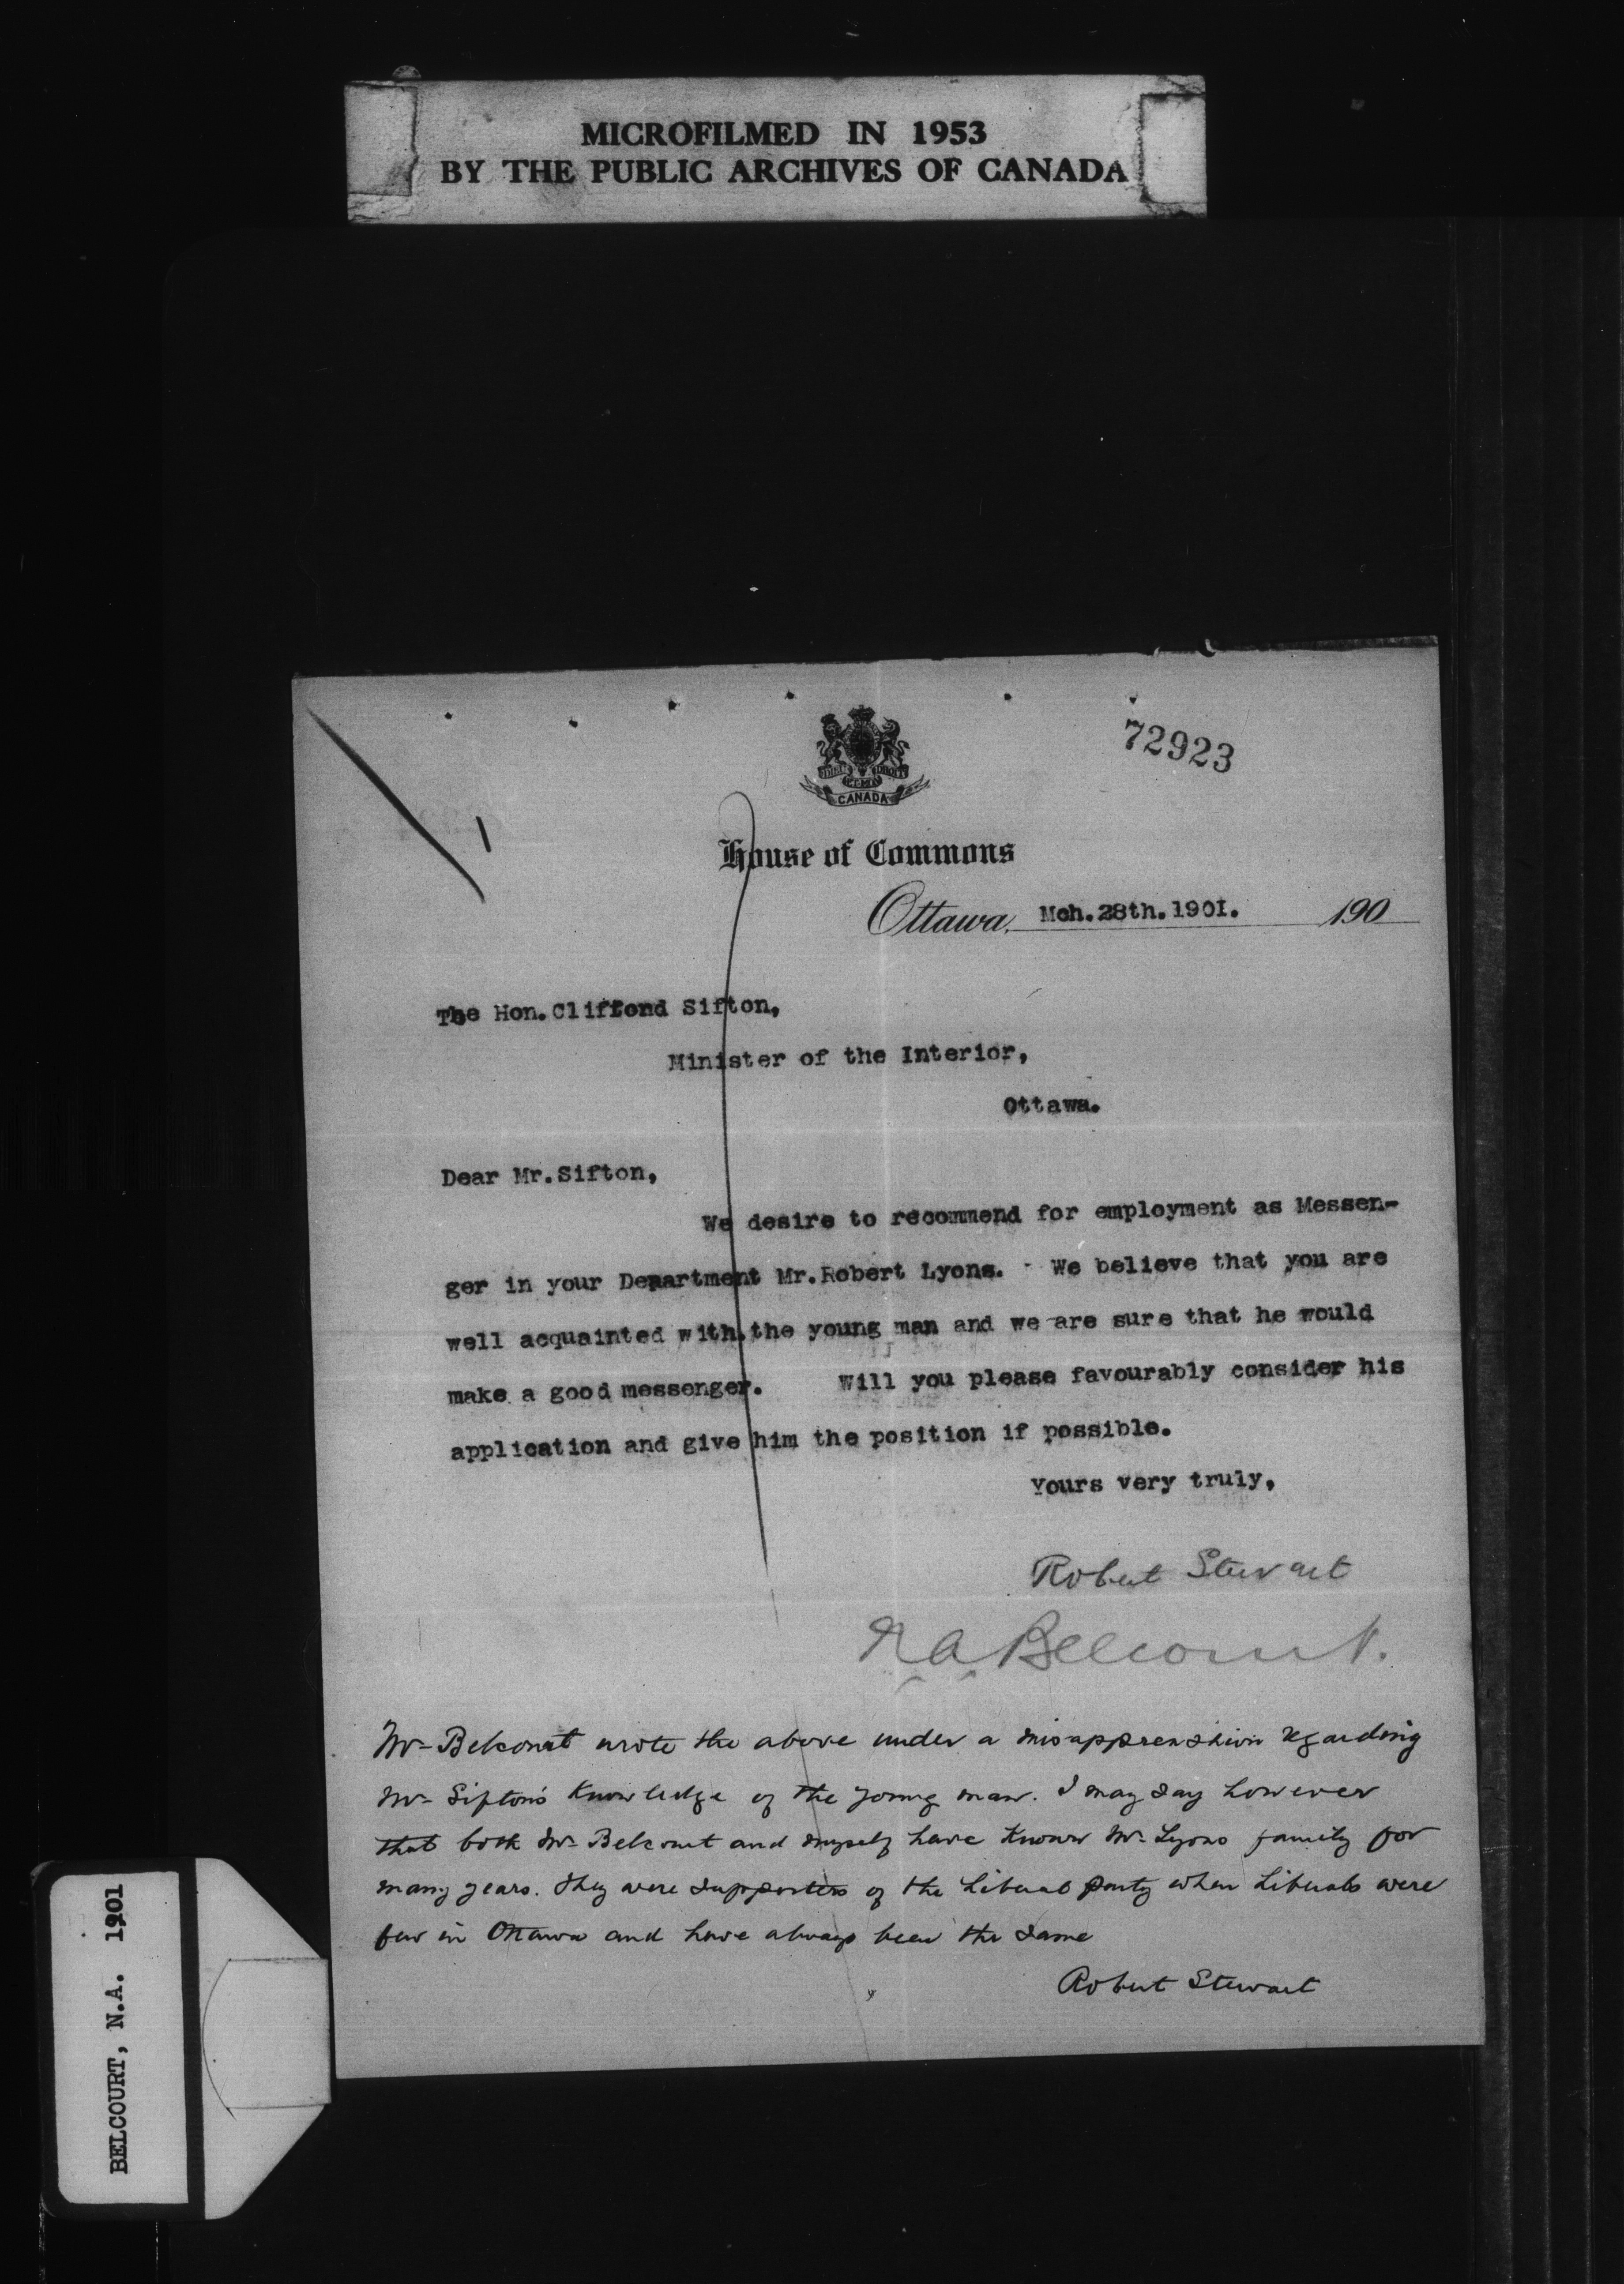 MICROFILMED IN 1953
BY THE PUBLIC ARCHIVES OF CANADA
72923
CANADA
House of Commons
Ottawa, Mch.28th.1901. 190
The Hon.Clifford Sifton,
Minister of the Interior,
Ottawa.
Dear Mr.Sifton,
We desire to recommend for employment as Messen-
ger in your Department Mr.Robert Lyons. We believe that you are
well acquainted with the young man and we are sure that he would
make a good messenger. Will you please favourably consider his
application and give him the position if possible.
Yours very truly,
Robert Stewart
N A Belcourt.
Mr Belcourt wrote the above under a misapprenshion regarding
Mr Sifton's knowledge of the young man. I may say however
that both Mr Belcourt and myself have known Mr. Lyons family for
many years. They were supporters of the Liberal party when Liberals were
few in Ottawa and have always been the same
Robert Stewart
BELCOURT, N.A. 1901